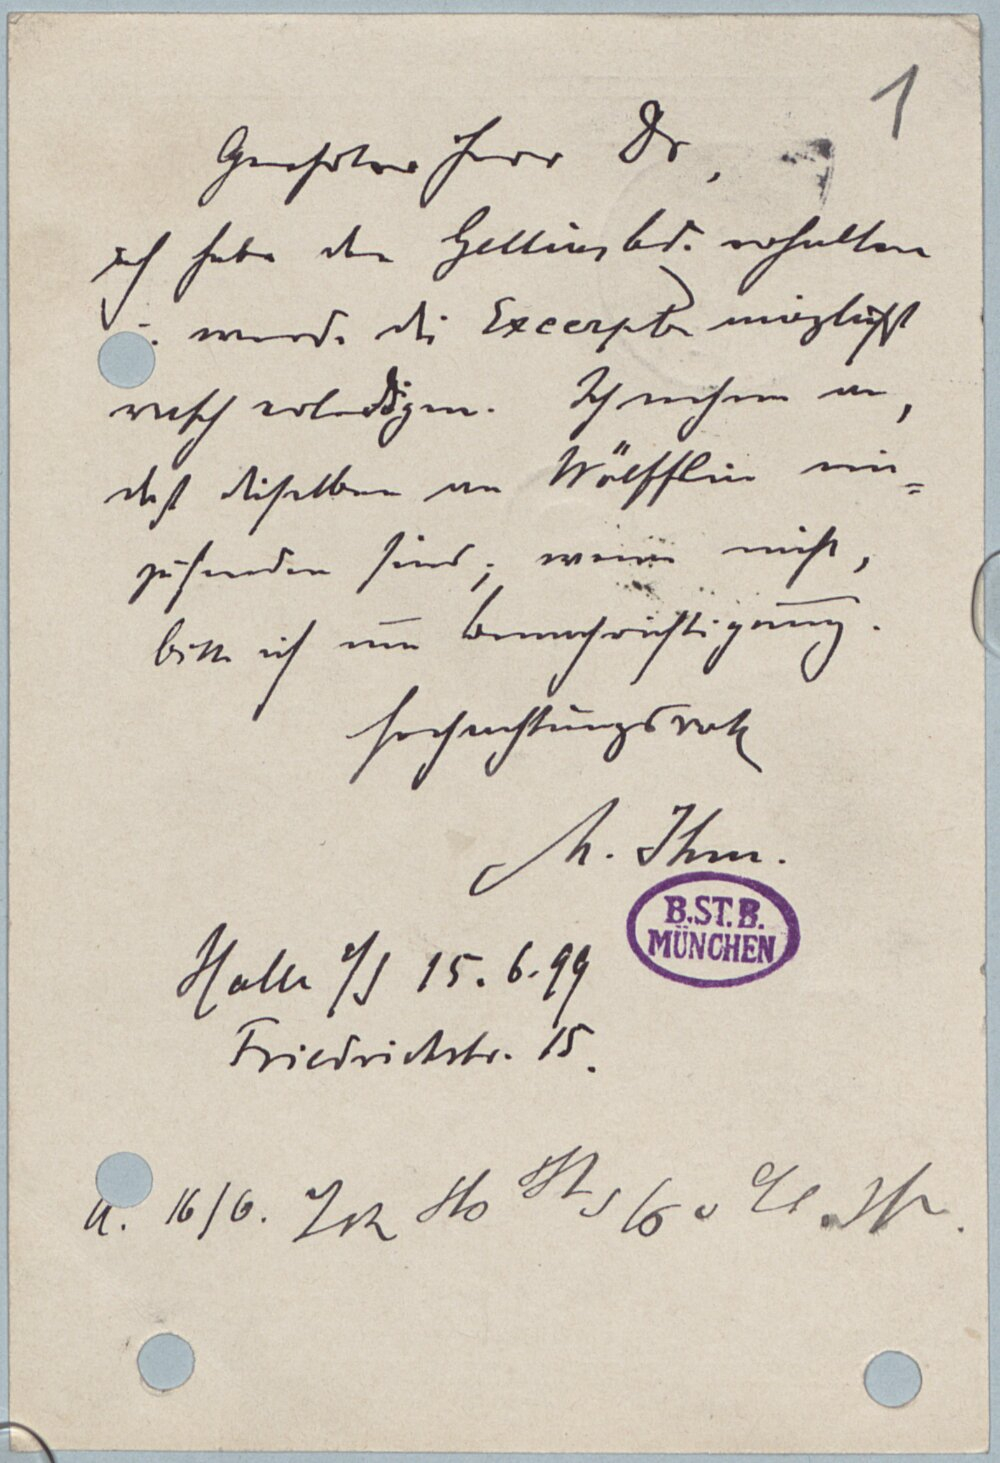 1
Geehrter Herr Dr,
ich habe den Gelliusbd. erhalten
u. werde die Excerpte möglichst
rasch erledigen. Ich nehme an,
daß dieselben an Wölfflin ein=
zusenden sind; wenn nicht,
bitte ich um Benachrichtigung.
Hochachtungsvoll
M. Ihm.
B.ST.B.
MÜNCHEN
Halle a/S 15.6.99
Friedrichstr. 15.
16/6.